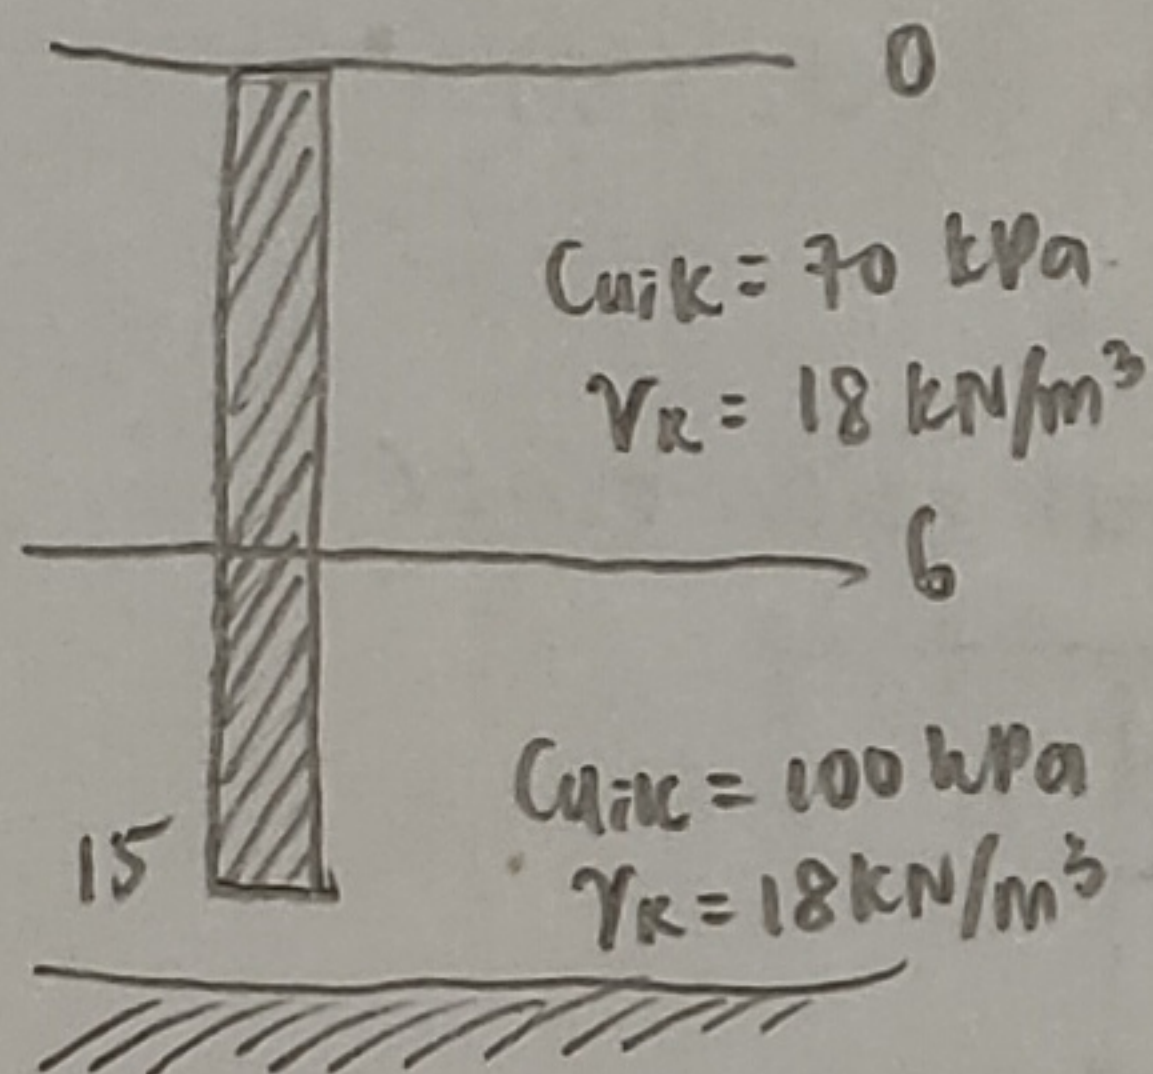 0
Cuik = 70 kPa
γk = 18 kN/m³
6
Cuik = 100 kPa
15
γk = 18 kN/m³